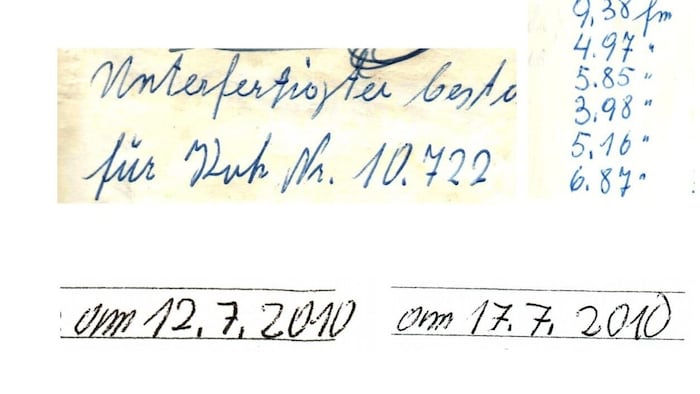 Unterfertigter besta
für Kuh Nr. 10.722
9.38 fm
4.97 "
5.85 "
3.98 "
5.16 "
6.87 "
am 12.7.2010
am 17.7.2010